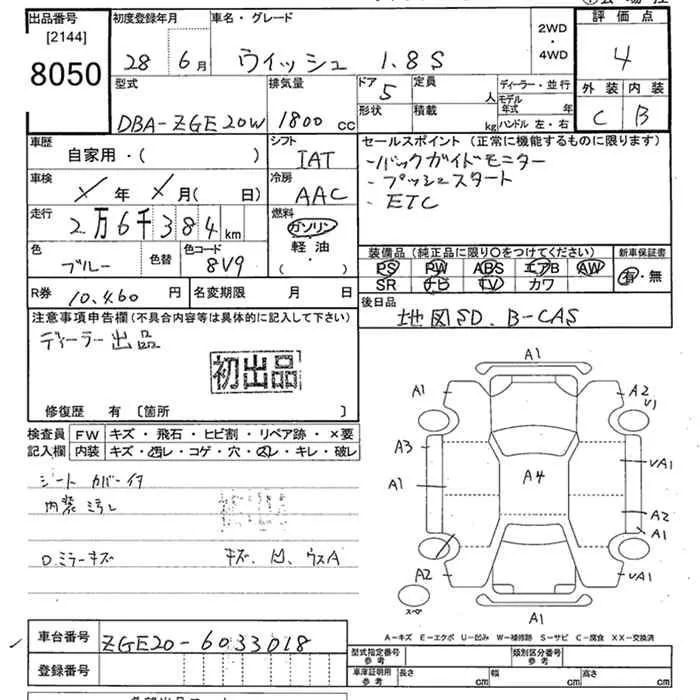 出品番号 初度登録年月 車名・グレード 2WD・4WD 評価点
[2144]
8050 28 6月 ウィッシュ 1.8S 4
型式 排気量 ドア 5 定員 人 ディーラー・並行 外装 内装
DBA-ZGE20W 1800cc 形状 積載 kg モデル年式 年 C B
ハンドル 左・右
車歴 自家用・( ) シフト IAT セールスポイント (正常に機能するものに限ります)
・バックガイドモニター
・プッシュスタート
・ETC
車検 年 月(日) 冷房 AAC
走行 2万6千384km 燃料 ガソリン
軽油
・( )
色 ブルー 色替 色コード 8V9
装備品 (純正品に限り○をつけてください) 新車保証書
PS PW ABS エアB AW 有・無
SR ナビ TV カワ
R券 10,460円 名変期限 月 日 後日品
地図SD、B-CAS
注意事項申告欄 (不具合内容等は具体的に記入して下さい)
ディーラー出品
初出品
修復歴 有 [箇所 ]
検査員 FW キズ・飛石・ヒビ割・リペア跡・×要
記入欄 内装 キズ・汚レ・コゲ・穴・スレ・キレ・破レ
シートカバーイタ
内装ヨゴレ
D.ミラーキズ キズ、凹、ウスA
A1
A1 A2 U1
A3
A1 A4 UA1
A2
A1
A2 UA1
スペア
A1
A-キズ E-エクボ U-凹み W-補修跡 S-サビ C-腐食 XX-交換済
車台番号 ZGE20-6033018
登録番号
型式指定番号 参考 類別区分番号 参考
車庫証明用 参考 長さ cm 幅 cm 高さ cm